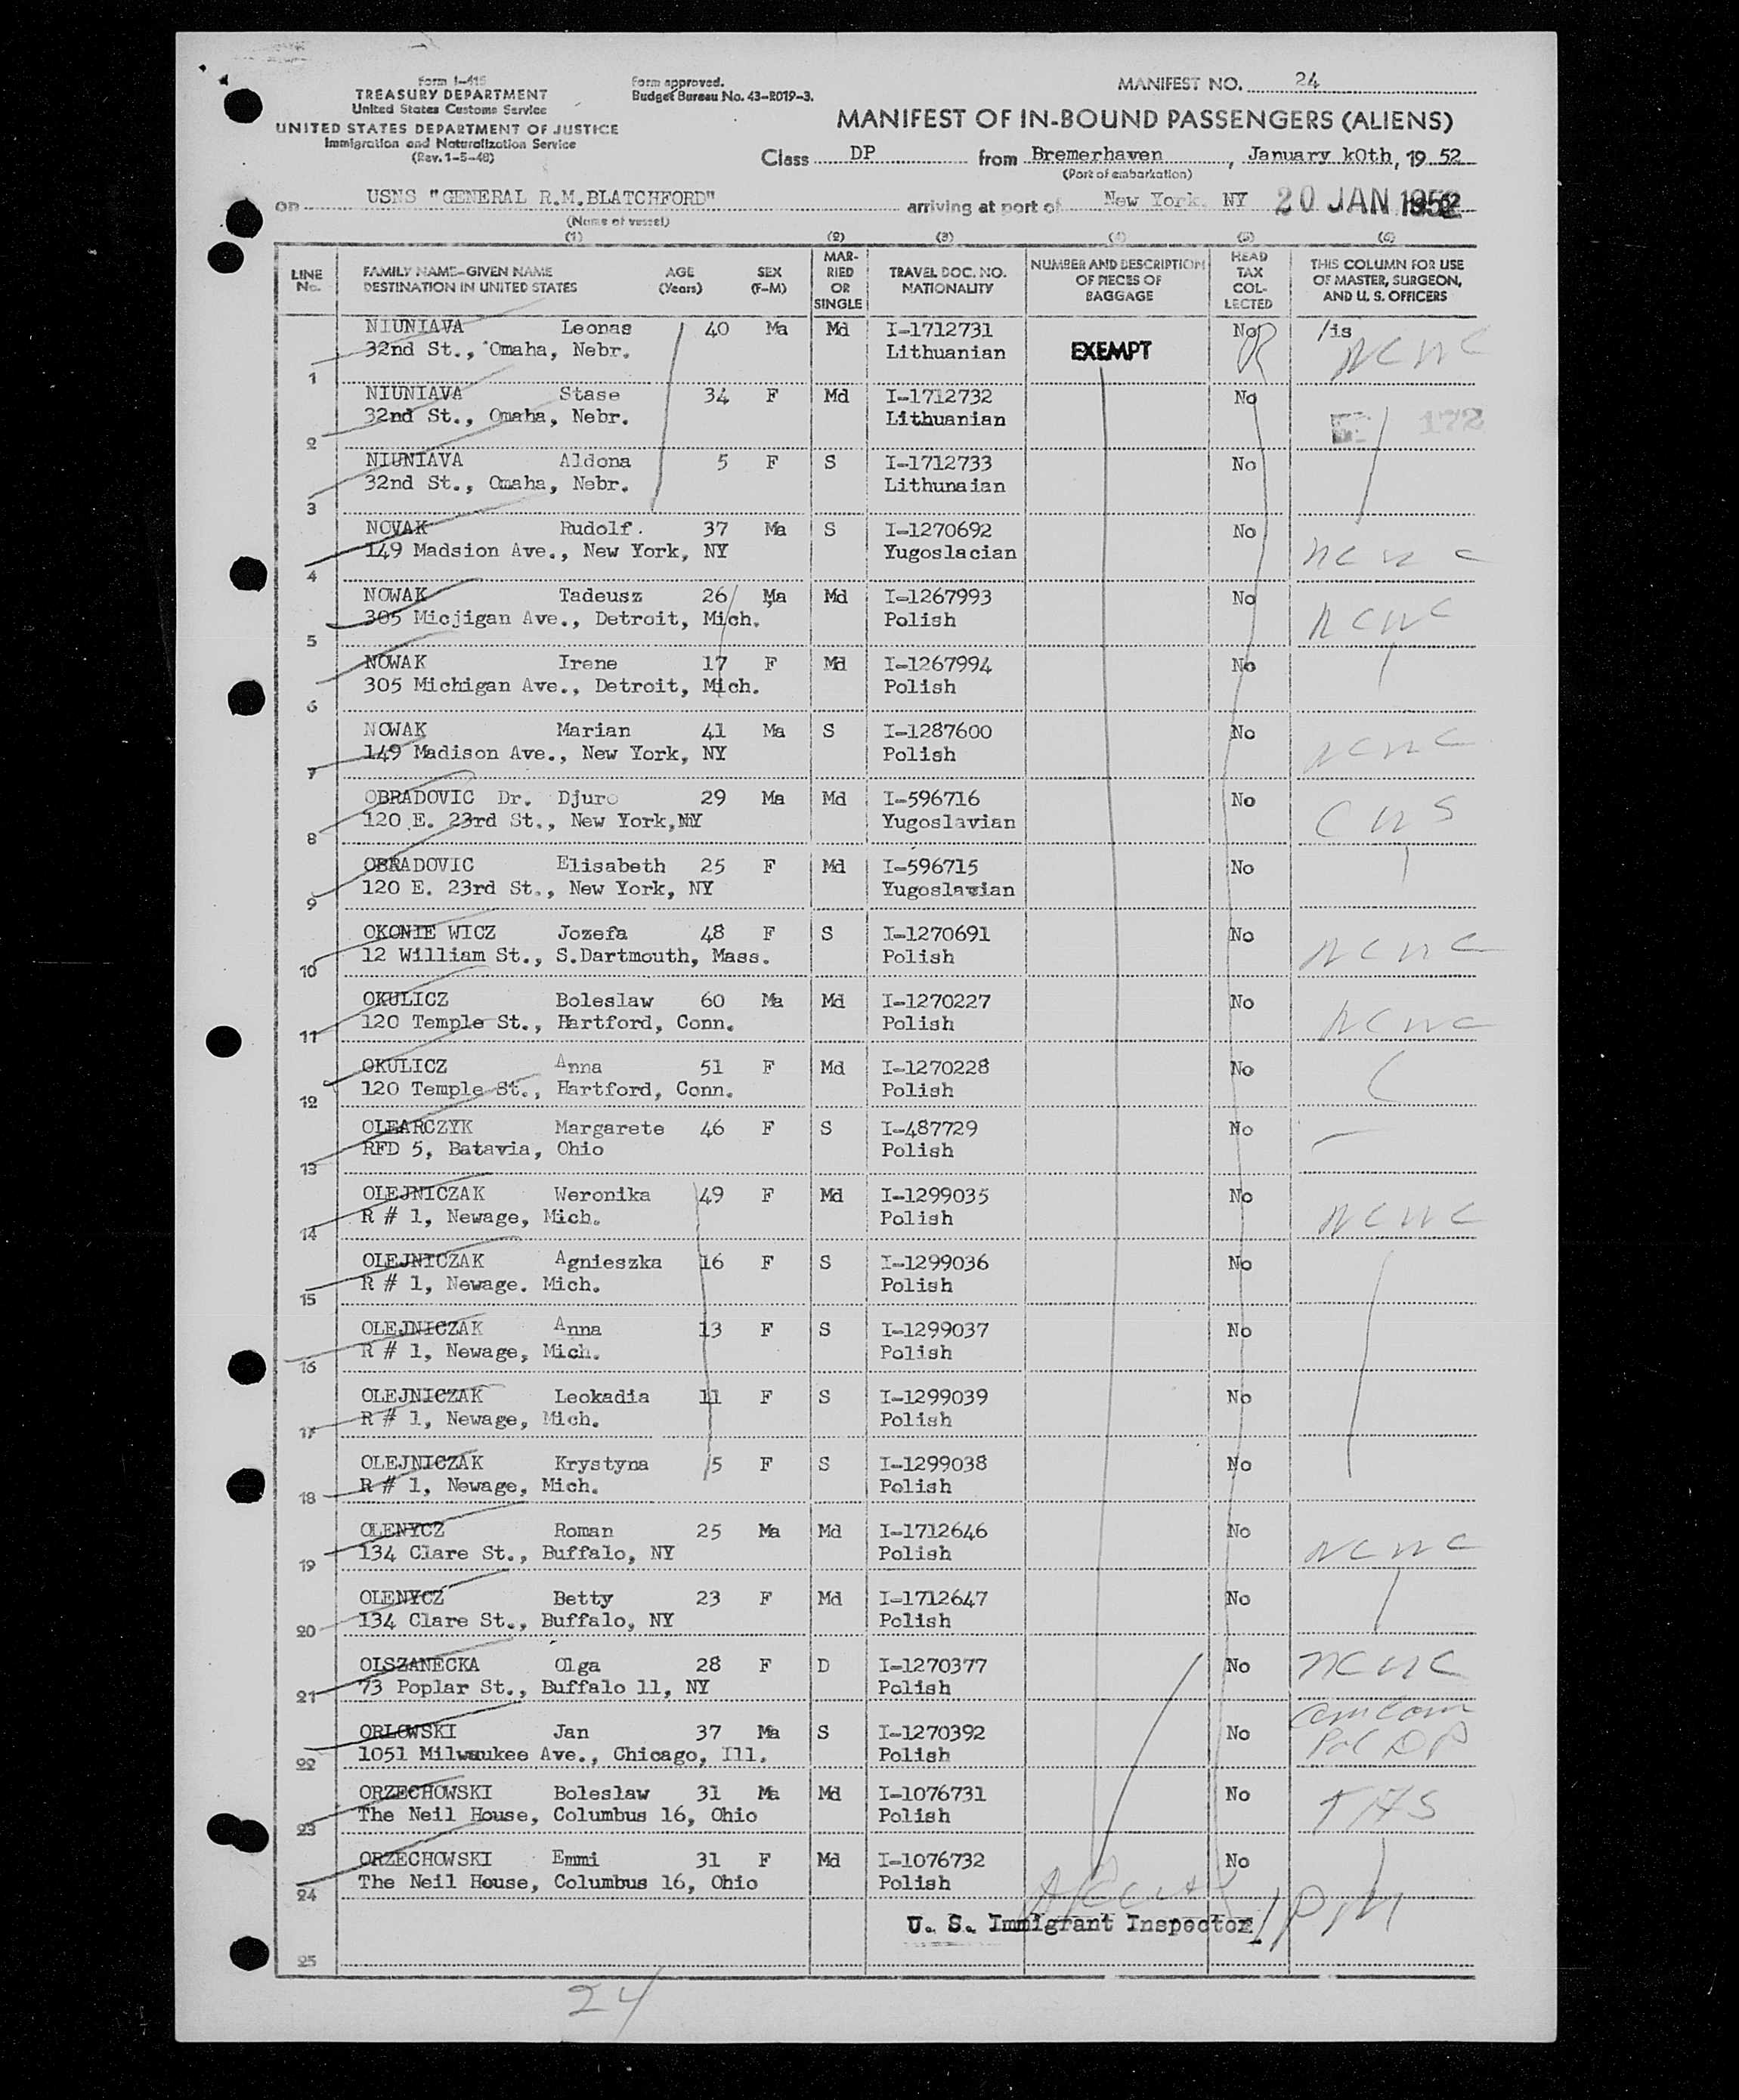 Form I-415
TREASURY DEPARTMENT
United States Customs Service
UNITED STATES DEPARTMENT OF JUSTICE
Immigration and Naturalization Service
(Rev. 1-5-48)
Form approved.
Budget Bureau No. 43-R019-3.
MANIFEST NO. 24
MANIFEST OF IN-BOUND PASSENGERS (ALIENS)
Class DP from Bremerhaven, January k0th, 19 52
(Port of embarkation)
on USNS "GENERAL R.M.BLATCHFORD" arriving at port of New York, NY 20 JAN 1952
(Name of vessel)
(1) (2) (3) (4) (5) (6)
LINE No. FAMILY NAME-GIVEN NAME DESTINATION IN UNITED STATES AGE (Years) SEX (F-M) MARRIED OR SINGLE TRAVEL DOC. NO. NATIONALITY NUMBER AND DESCRIPTION OF PIECES OF BAGGAGE HEAD TAX COLLECTED THIS COLUMN FOR USE OF MASTER, SURGEON, AND U. S. OFFICERS
NIUNIAVA Leonas 40 Ma Md I-1712731 No /is
32nd St., Omaha, Nebr. Lithuanian EXEMPT ncnc
1
NIUNIAVA Stase 34 F Md I-1712732 No
32nd St., Omaha, Nebr. Lithuanian 172
2
NIUNIAVA Aldona 5 F S I-1712733 No
32nd St., Omaha, Nebr. Lithunaian
3
NOVAK Rudolf. 37 Ma S I-1270692 No
149 Madsion Ave., New York, NY Yugoslacian ncnc
4
NOWAK Tadeusz 26 Ma Md I-1267993 No
305 Micjigan Ave., Detroit, Mich. Polish ncnc
5
NOWAK Irene 17 F Md I-1267994 No
305 Michigan Ave., Detroit, Mich. Polish
6
NOWAK Marian 41 Ma S I-1287600 No
149 Madison Ave., New York, NY Polish ncnc
7
OBRADOVIC Dr. Djuro 29 Ma Md I-596716 No
120 E. 23rd St., New York,NY Yugoslavian CWS
8
OBRADOVIC Elisabeth 25 F Md I-596715 No
120 E. 23rd St., New York, NY Yugoslavian
9
OKONIE WICZ Jozefa 48 F S I-1270691 No
12 William St., S.Dartmouth, Mass. Polish ncnc
10
OKULICZ Boleslaw 60 Ma Md I-1270227 No
120 Temple St., Hartford, Conn. Polish ncnc
11
OKULICZ Anna 51 F Md I-1270228 No
120 Temple St., Hartford, Conn. Polish
12
OLEARCZYK Margarete 46 F S I-487729 No
RFD 5, Batavia, Ohio Polish
13
OLEJNICZAK Weronika 49 F Md I-1299035 No
R # 1, Newage, Mich. Polish ncnc
14
OLEJNICZAK Agnieszka 16 F S I-1299036 No
R # 1, Newage. Mich. Polish
15
OLEJNICZAK Anna 13 F S I-1299037 No
R # 1, Newage, Mich. Polish
16
OLEJNICZAK Leokadia 11 F S I-1299039 No
R # 1, Newage, Mich. Polish
17
OLEJNICZAK Krystyna 5 F S I-1299038 No
R # 1, Newage, Mich. Polish
18
OLENYCZ Roman 25 Ma Md I-1712646 No
134 Clare St., Buffalo, NY Polish ncnc
19
OLENYCZ Betty 23 F Md I-1712647 No
134 Clare St., Buffalo, NY Polish
20
OLSZANECKA Olga 28 F D I-1270377 No ncnc
73 Poplar St., Buffalo 11, NY Polish
21
ORLOWSKI Jan 37 Ma S I-1270392 No Am Com
1051 Milwaukee Ave., Chicago, Ill. Polish Pol DP
22
ORZECHOWSKI Boleslaw 31 Ma Md I-1076731 No
The Neil House, Columbus 16, Ohio Polish
23
ORZECHOWSKI Emmi 31 F Md I-1076732 No
The Neil House, Columbus 16, Ohio Polish
24
U. S. Immigrant Inspector
25
24